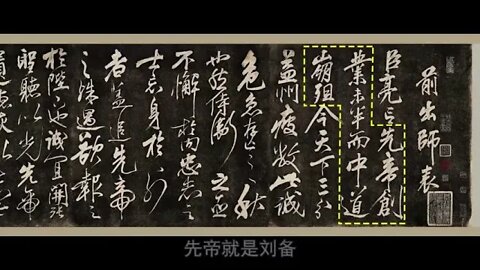 前出師表
臣亮言先帝創
業未半而中道
崩殂今天下三分
益州疲敝此誠
危急存亡之秋
也然侍衛之臣
不懈於內忠志之
士忘身於外
者蓋追先帝
之殊遇欲報之
於陛下也誠宜開張
聖聽以光先帝
先帝就是刘备